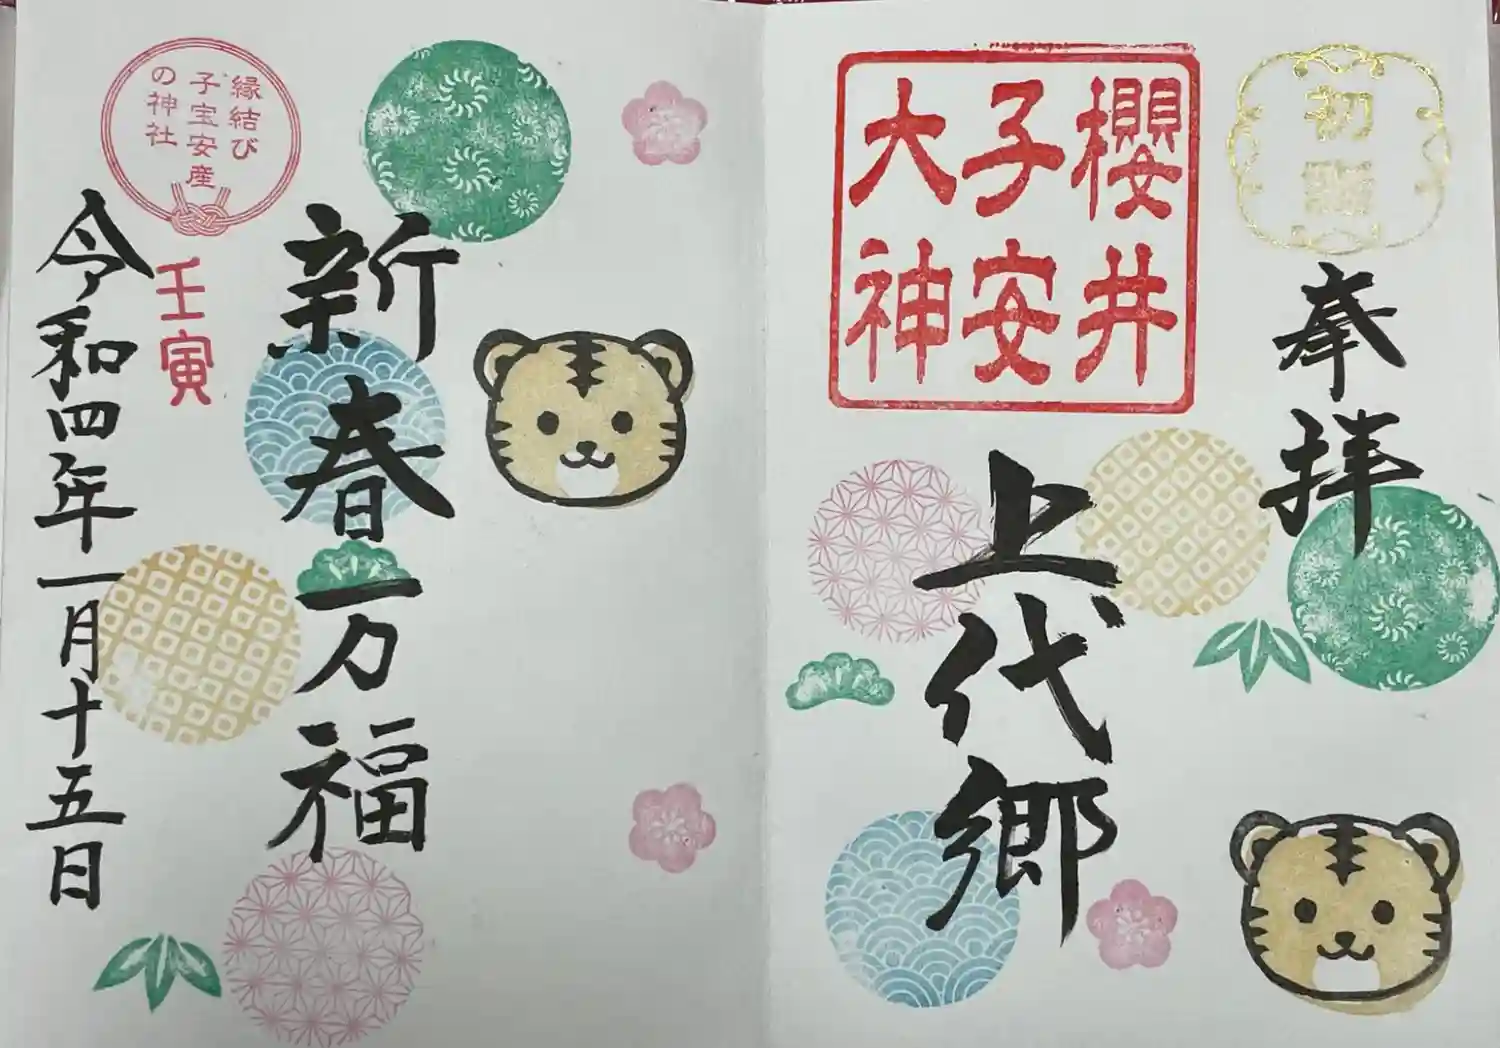 初詣
奉拝
櫻井
子安
大神
上代郷
新春万福
縁結び
子宝安産
の神社
壬寅
令和四年一月十五日